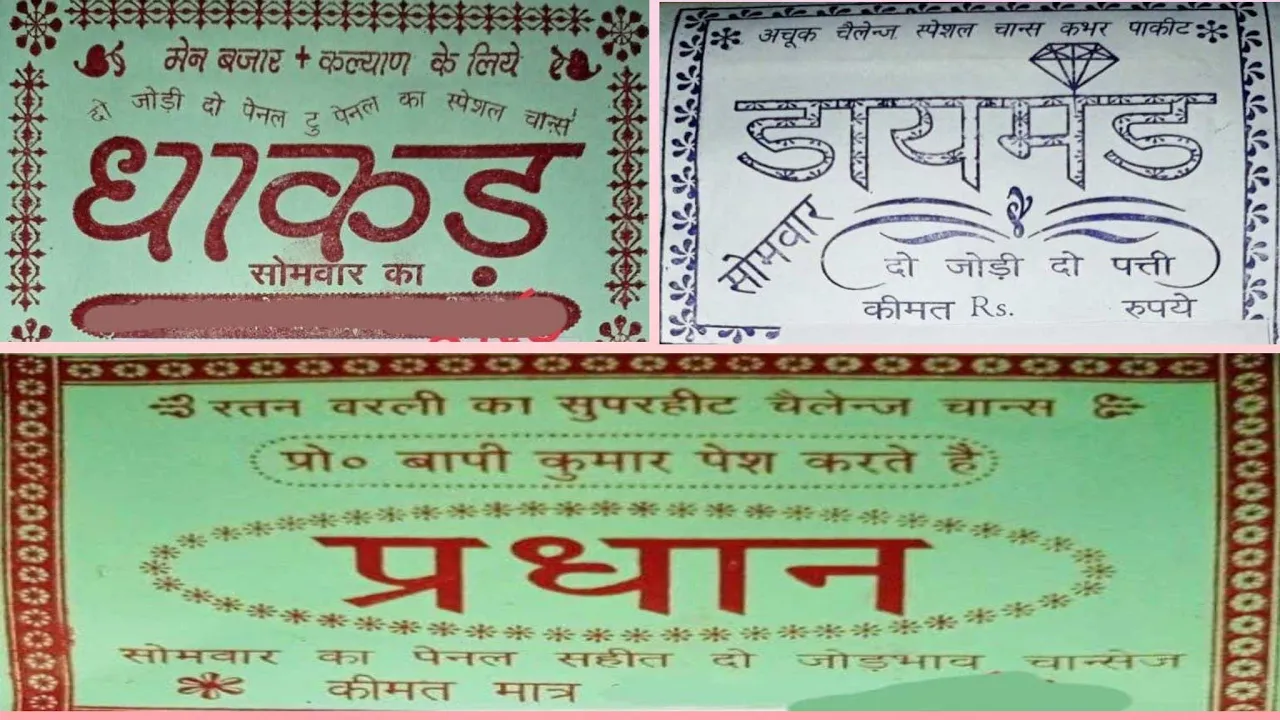 मेन बजार + कल्याण के लिये
दो जोड़ी दो पेनल टु पेनल का स्पेशल चान्स
धाकड़
सोमवार का
अचूक चैलेन्ज स्पेशल चान्स कभर पाकीट
डायमंड
सोमवार
दो जोड़ी दो पत्ती
कीमत Rs. रुपये
रतन वरली का सुपरहीट चैलेन्ज चान्स
प्रो० बापी कुमार पेश करते है
प्रधान
सोमवार का पेनल सहीत दो जोड़भाव चान्सेज
कीमत मात्र